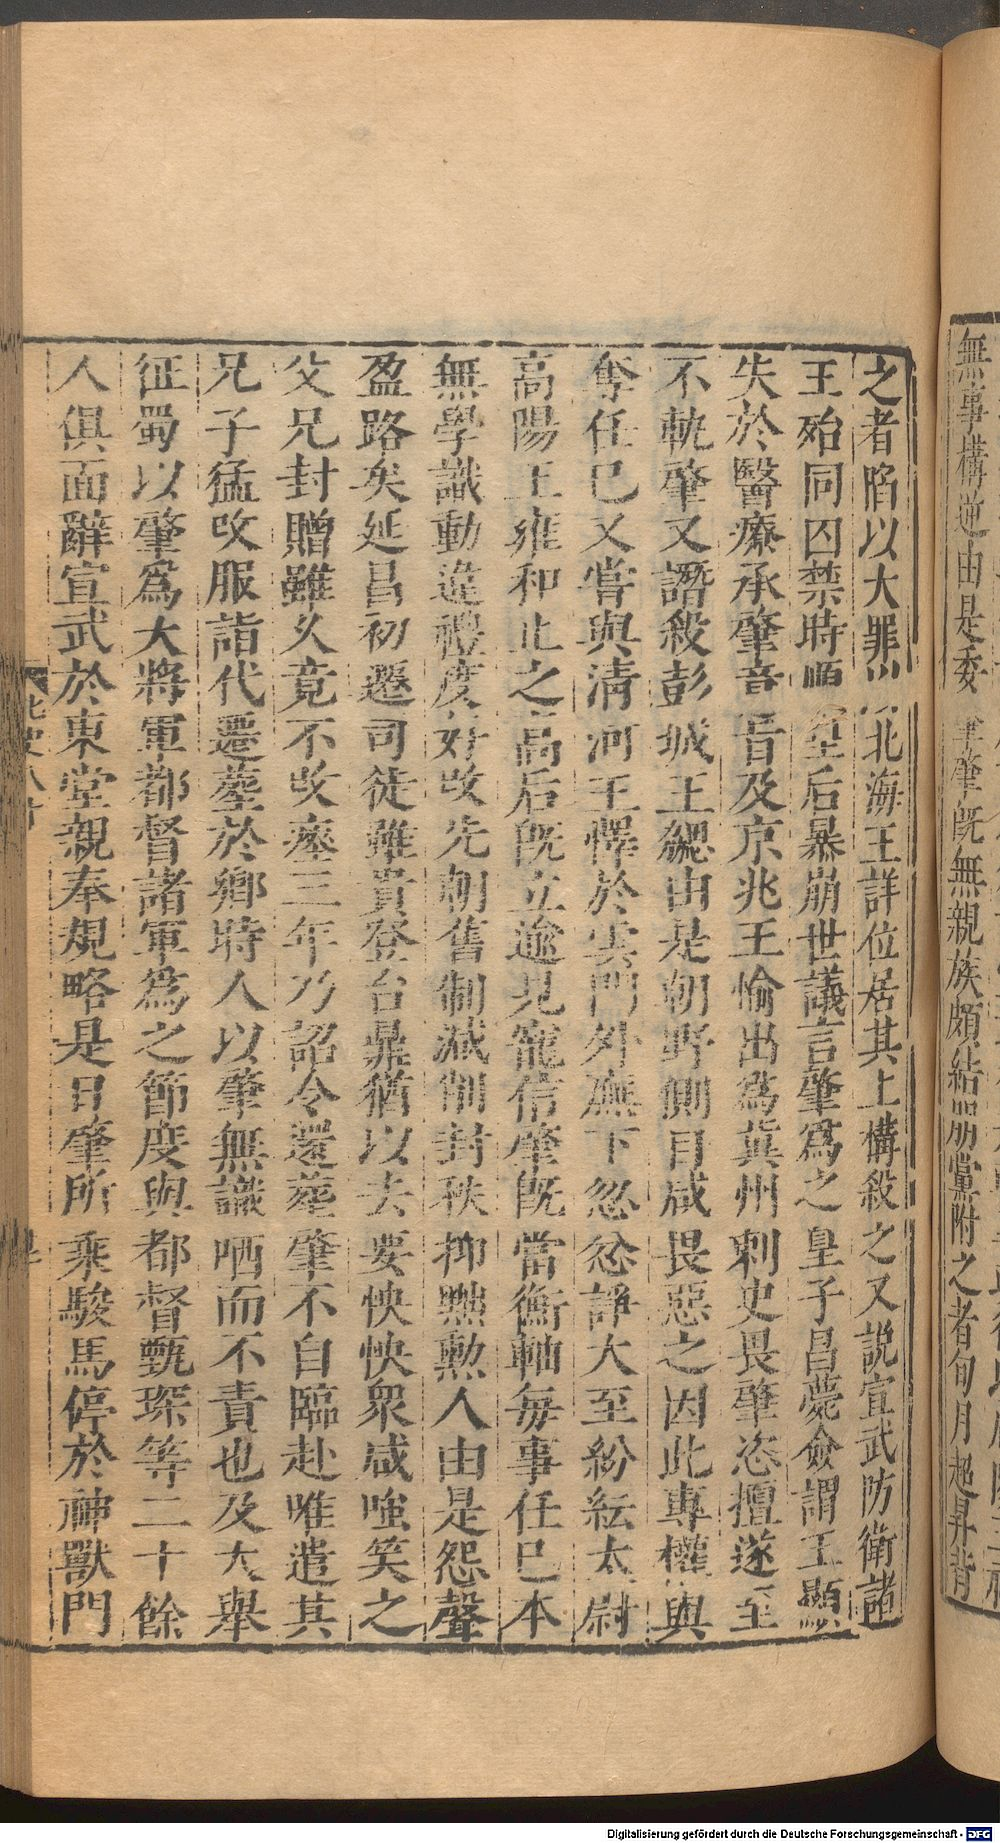 無事構逆由是委 肇肇既無親族頗結朋黨附之者旬月超昇背
之者陷以大罪 北海王詳位居其上構殺之又說宣武防衛諸
王殆同囚禁時順皇后暴崩世議言肇爲之皇子昌薨僉謂王顯
失於醫療承肇意旨及京兆王愉出爲冀州刺史畏肇恣擅遂至
不軌肇又譖殺彭城王勰由是朝野側目咸畏惡之因此專權與
奪任已又嘗與清河王懌於雲門外廡下忽忿諍大至紛紜太尉
高陽王雍和止之高后既立逾見寵信肇既當衡軸每事任已本
無學識動違禮度好改先朝舊制減削封秩抑黜勲人由是怨聲
盈路矣延昌初遷司徒雖貴登台鼎猶以去要怏怏衆咸嗤笑之
父兄封贈雖久竟不改瘞三年乃詔令還葬肇不自臨赴唯遣其
兄子猛改服詣代遷葬於鄉時人以肇無識哂而不責也及大舉
征蜀以肇爲大將軍都督諸軍爲之節度與都督甄琛等二十餘
人俱面辭宣武於東堂親奉規略是日肇所乘駿馬停於神獸門
北史八十
Digitalisierung gefördert durch die Deutsche Forschungsgemeinschaft - DFG